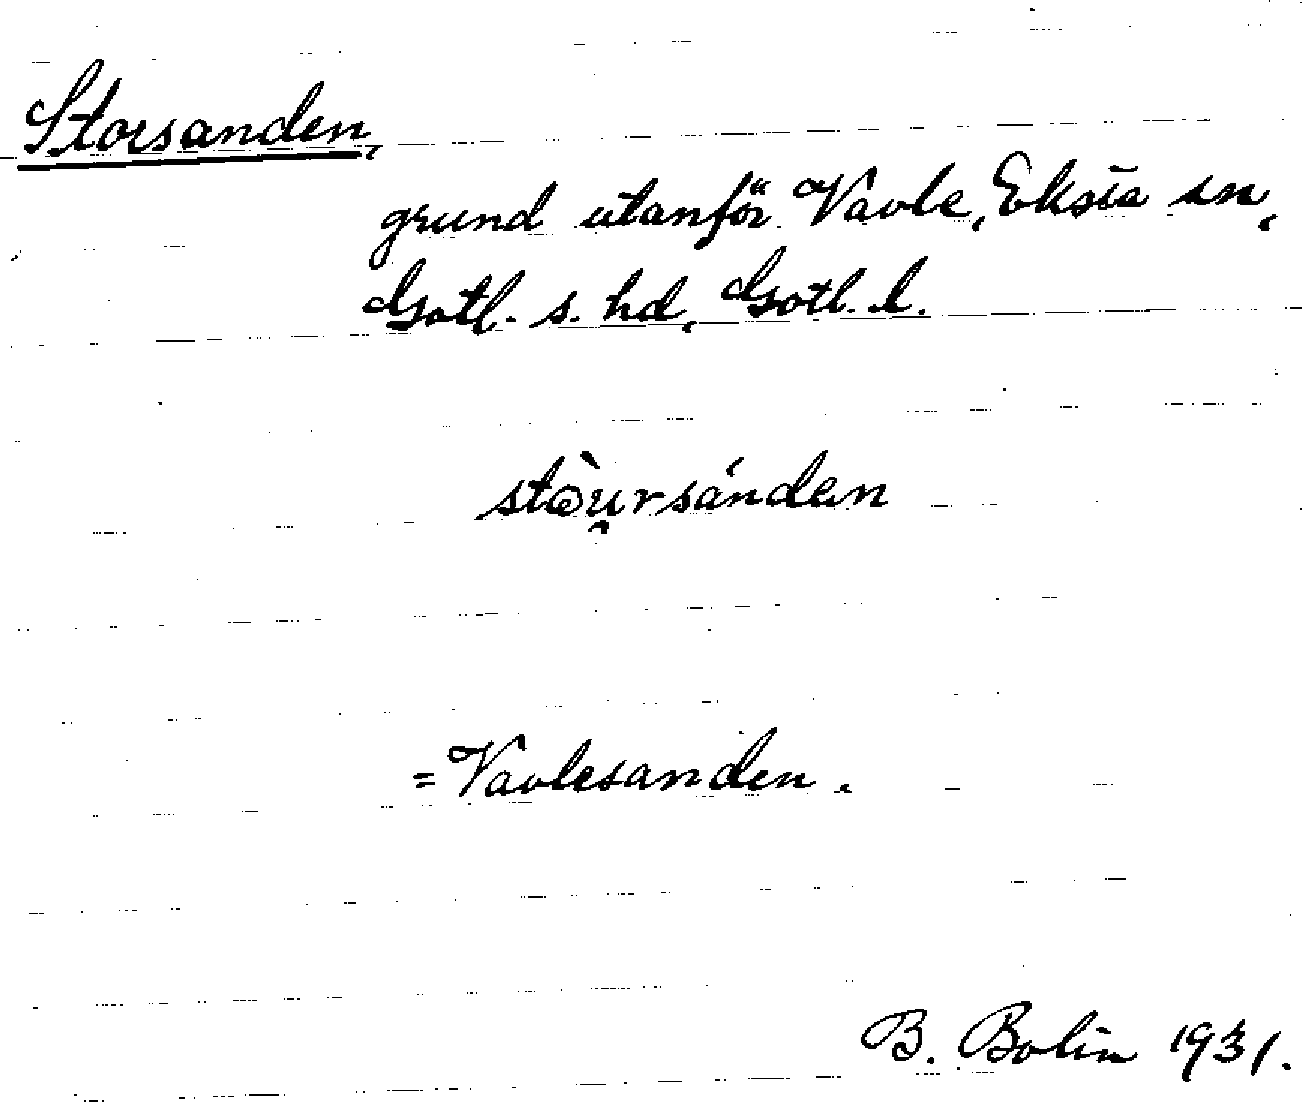 Storsanden,
grund utanför Vavle, Eksta sn,
Gotl. s. hd, Gotl. l.
stòu̯rsánden
= Vavlesanden.
B. Bolin 1931.